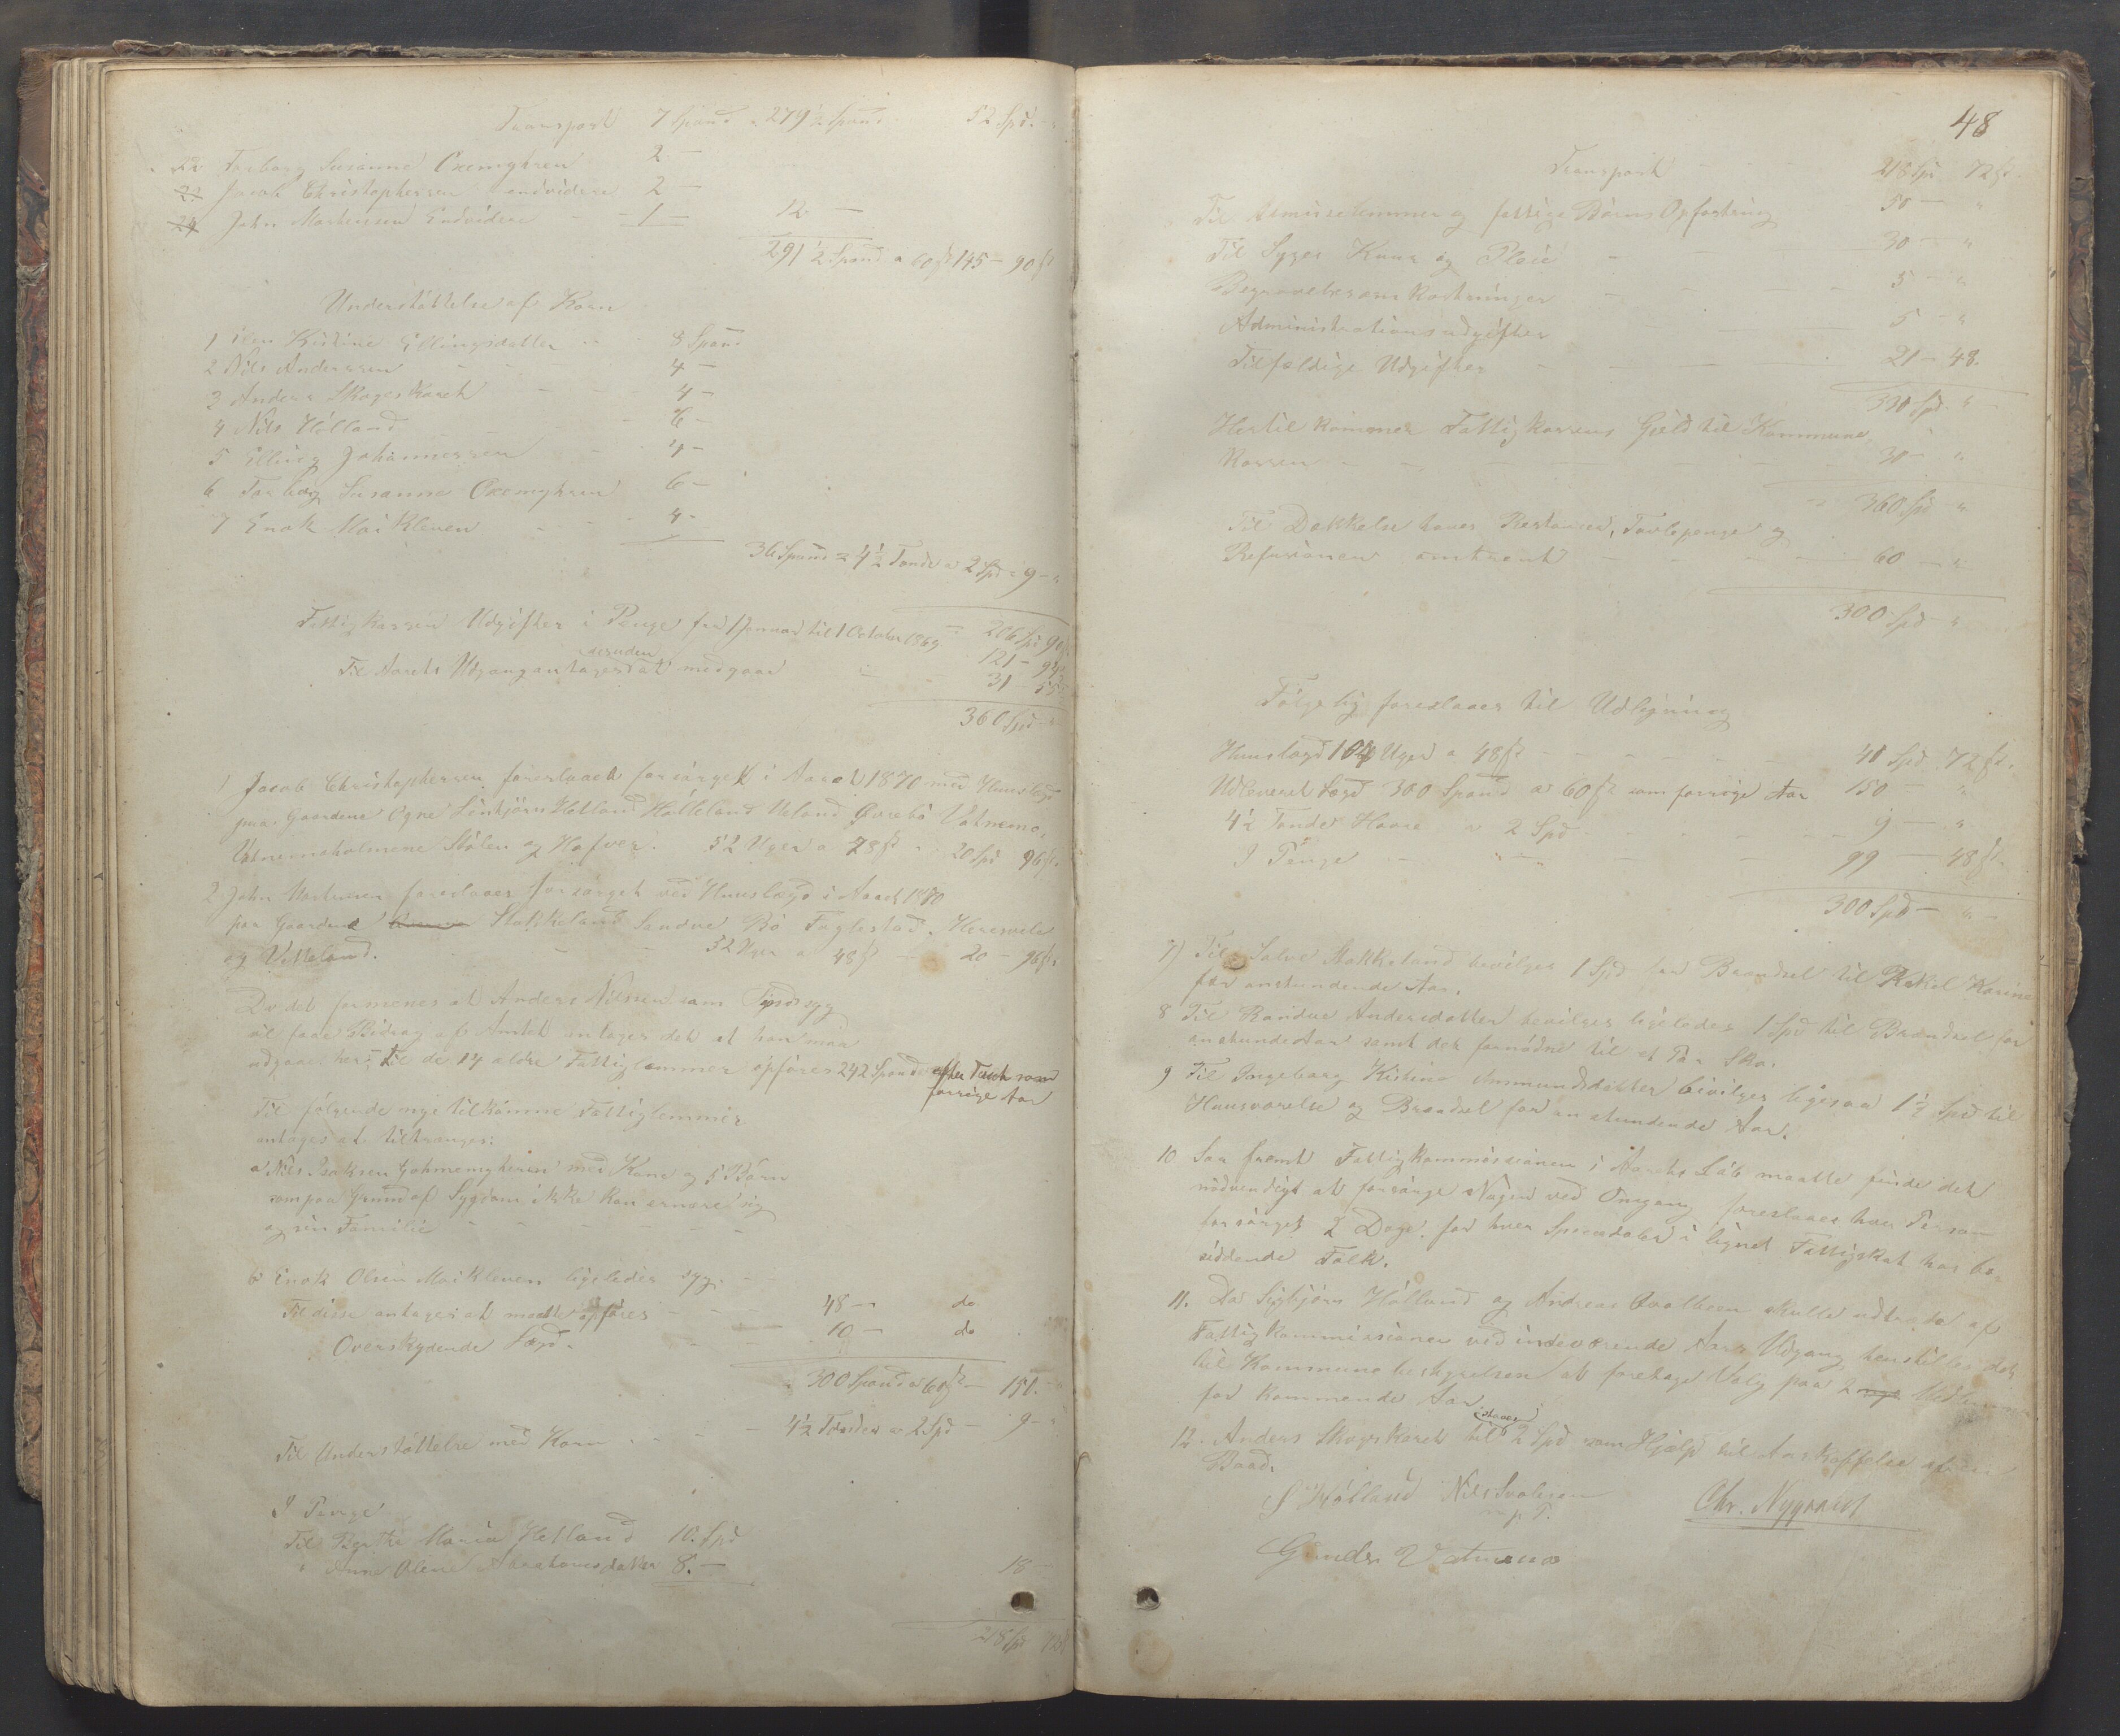 Transport 7 Spand a 279½ Spand 52 Spd. "
22 Torborg Susanne Oxemyhren 2 —
23 Jacob Christophersen endvidere 2 —
24 John Mortensen Endvidere — 1 — 12 —
291½ Spand a 60 ß 145 — 90 ß
Understøttelse af Korn
1 Elen Kistine Ellingsdatter 8 Spand
2 Nils Anderssen 4 —
3 Anders Skogskaret 4 —
4 Nils Hølland 6 —
5 Elling Johannessen 4 —
6 Torborg Susanne Oxemyhren 6 —
7 Enok Maikleven 4 -
36 Spand = 4½ Tønde a 2 Spd = 9 — "
206 Spd 90 ß
Fattigkassen Udgifter i Penge fra 1 Januar til 1 October 1869 = 121 — 94
Til Aarets Udgang antages desuden at medgaa — 31 — 55
360 Spd "
1 Jacob Christophersen foreslaaes forsørget i Aaret 1870 med Huuslægd
paa Gaardene Ogne Hølland Hølleland Ueland Øvrebø Vatnemo,
Vatnemoholmene Støler og Hafver. 52 Uger a 48 ß " 20 Spd 96 ß.
2 John Mortensen foreslaaes forsørget ved Huuslægd i Aaret 1870
paa Gaardene Stokkeland Sandve Bø Fuglestad, Heresvela
og Vetteland. — — 52 Uger a 48 ß — 20 — 96 ß.
Da det formenes at Anders Nilssen som Sindssyg
vil faae Bidrag af Amtet antages det at han maa
udgaae her; til de 14 ældre Fattiglemmer opføres 242 Spand efter Taxt som
forrige Aar
Til følgende nye tilkomne Fattiglemmer
antages at tiltrænges:
a Nils Isaksen med Kone og 5 Børn
som paa Grund af Sygdom ikke kan ernære sig
og sin Familie — — — — —
b Enok Olsen Maikleven ligeledes syg. —
Til disse antages at maatte opføres — — 48 — do
Overskydende Lægd. — — 10 — do
300 Spand a 60 ß — 150. — "
Til Understøttelse med Korn — — 4½ Tønder a 2 Spd — 9 — "
I Penge
Til Berthe Maria Hetland 10. Spd
" Anne Olene Abrahamsdatter 8. — 18 —
218 Spd 72 ß
48
Transport — — — 218 Spd 72 ß.
Til Almisselemmer og fattige Børns Opfostring 50 — "
Til Syges Kuur og Pleie — 30 — "
Begravelsesomkostninger — — — 5 — "
Administrationsudgifter — — 5 — "
Tilfældige Udgifter — — — 21 — 48.
330 Spd "
Hertil kommer Fattigkassens Gjeld til Kommune
Kassen — — — — — 30 — "
360 Spd "
Til Dækkelse haves Restancer, Tavlepenge og
Refusioner omtrent — — — 60 — "
300 Spd — "
Følgelig foreslaaes til Udligning
Huuslægd 104 Uger a 48 ß — — — 41 Spd 72 ß.
Udleveret Lægd 300 Spand a 60 ß som forrige Aar 150 — "
4½ Tønder Havre a 2 Spd — — — 9 — "
I Penge — " — " — — 99 — 48 ß.
300 Spd — " —
7) Til Salve Stokkeland bevilges 1 Spd for Brændsel til Rakel Karine
for anstundende Aar.
8 Til Randve Andersdatter bevilges ligeledes 1 Spd til Brændsel for
anstunde Aar samt det fornødne til et Par Sko.
9 Til Ingeborg Kistine Ammundsdatter bevilges ligesaa 1½ Spd til
Huusværelse og Brændsel for anstundende Aar.
10 Saa fremt Fattigkommissionen i Aarets Løb maatte finde det
nødvendigt at forsørge Nogen ved Omgang, foreslaaes hver Person
forsørget 2 Dage for hver Speciedaler i lignet Fattigskat hos bo-
siddende Folk.
11. Da Sigbjørn Hølland og Andreas Qvalbein skulle udtræde af
Fattigkommissionen ved indeværende Aars Udgang, henstilles det
til Kommunebestyrelsen at foretage Valg paa 2 nye Medlemmer
for kommende Aar.
12. Anders Skogskaret tilstaaes 2 Spd som Hjælp til Anskaffelse af en
Baad.
S Hølland Nils Svalesen
m p T.
Chr. Nyqvist
Gunder Vatnemo